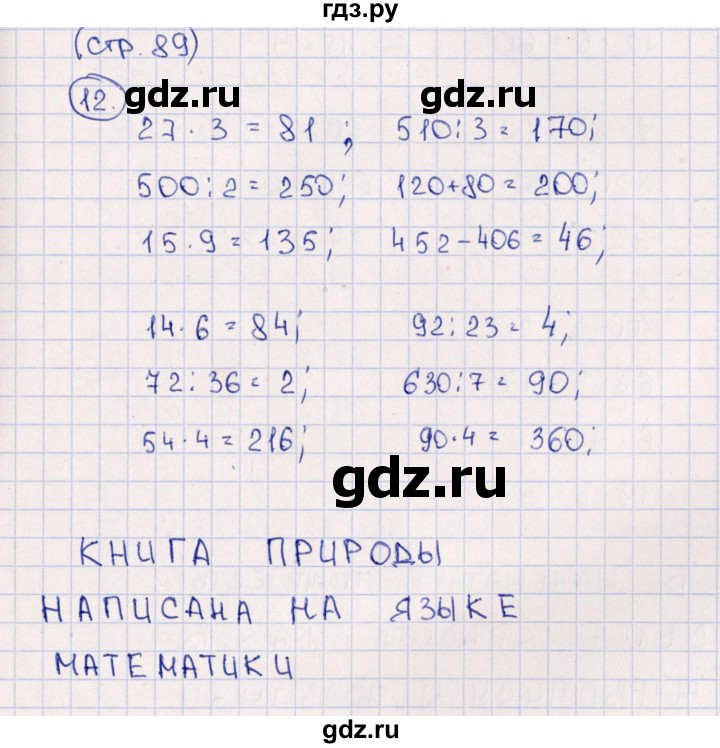 гдз.ру
(стр. 89)
12.
gdz.ru gdz.ru
27 · 3 = 81 ; 510 : 3 = 170;
500 : 2 = 250; 120+80 = 200;
15 · 9 = 135; 452 - 406 = 46;
14 · 6 = 84; 92 : 23 = 4;
72 : 36 = 2; 630 : 7 = 90;
54 · 4 = 216; 90 · 4 = 360;
gdz.ru
КНИГА ПРИРОДЫ
НАПИСАНА НА ЯЗЫКЕ
МАТЕМАТИКИ
gdz.ru